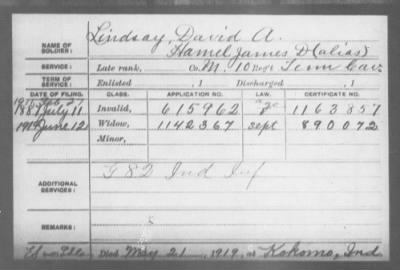 NAME OF SOLDIER: Lindsay, David A.
Hamel James D (alias)
SERVICE: Late rank, Co. M, 10 Reg't Tenn Cav
TERM OF SERVICE: Enlisted , 1 Discharged , 1
DATE OF FILING. CLASS. APPLICATION NO. LAW. CERTIFICATE NO.
July 11 Invalid, 615962 1163857
1919 June 12 Widow, 1142367 Sept 890072
Minor,
ADDITIONAL SERVICES: G 82 Ind Inf
REMARKS:
Died May 21, 1919, at Kokomo, Ind